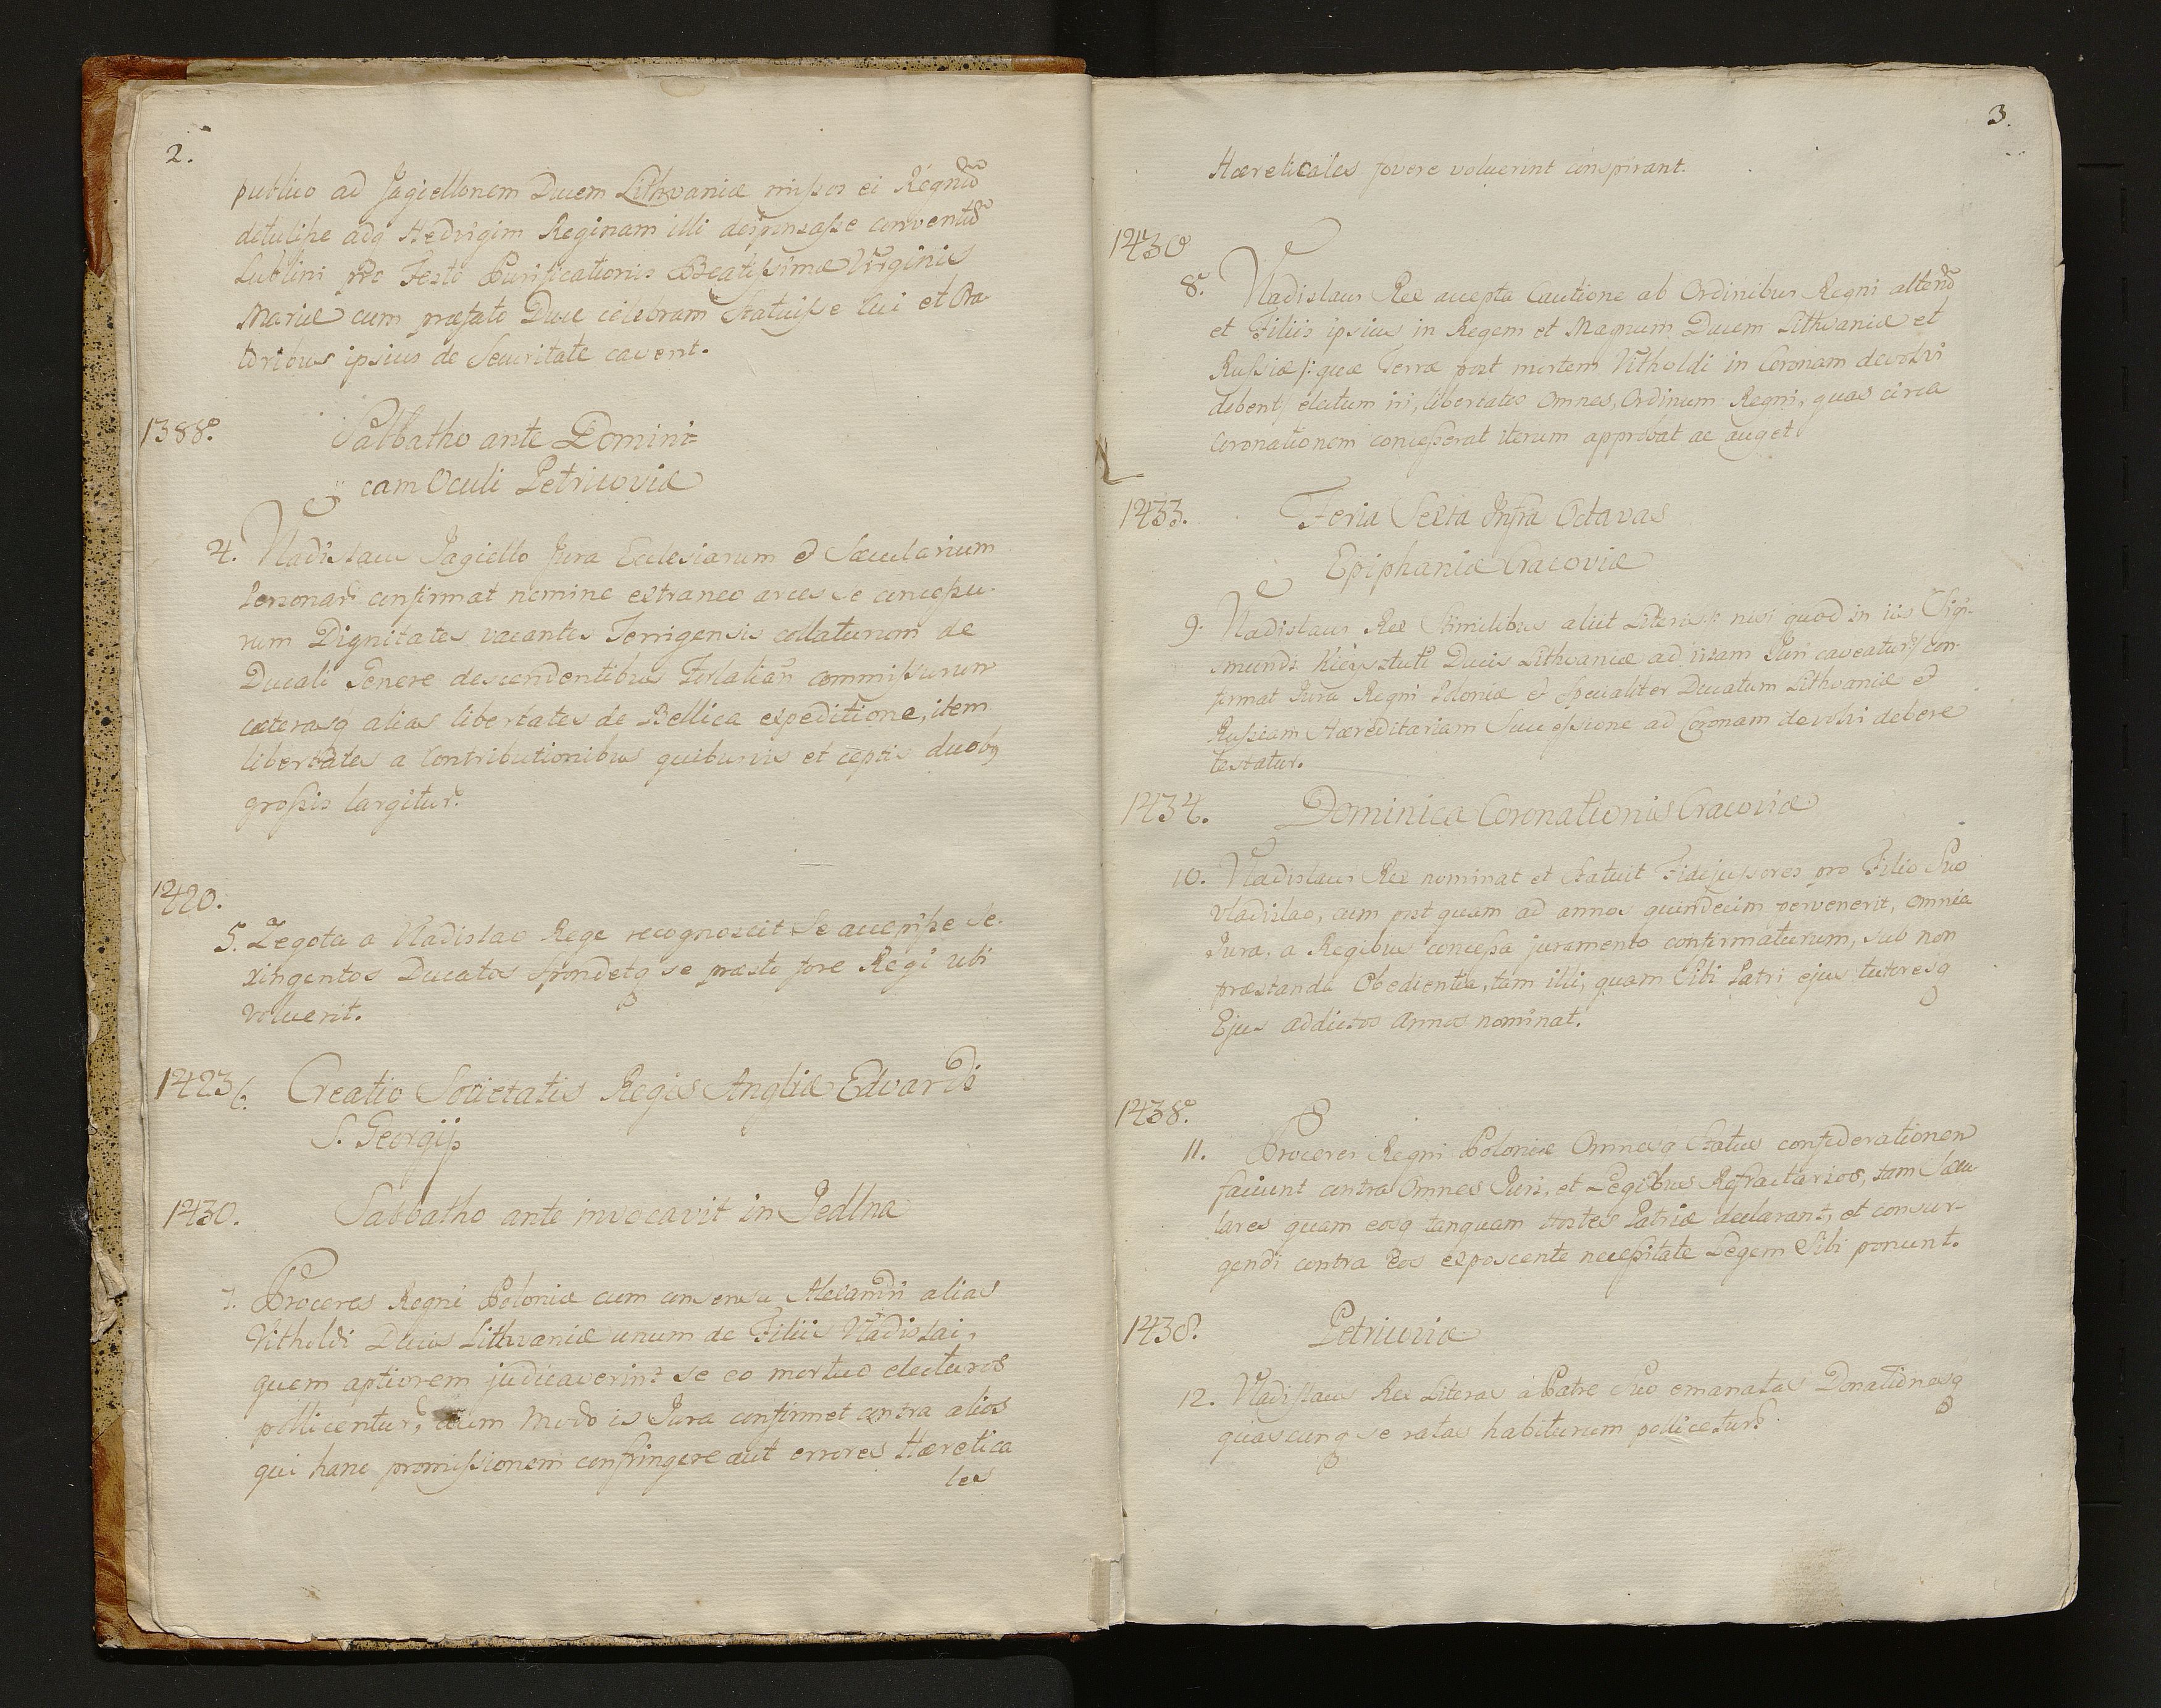 2.
publico ad Jagiellonem Ducem Lithvaniæ missos ei Regnu͞
detulisse adq Hedvigim Reginam illi desponsasse conventu͞
Lublini pro Festo Purificationis Beatissimæ Virginis
Mariæ cum præfato Duce celebram Statuisse Cui et Ora-
toribus ipsius de Securitate cavent.
1388.
Sabbatho ante Domini=
cam Oculi Petricoviæ
4. Vladislaus Jagiello Jura Ecclesiarum et Sæcularium
Personar confirmat nomine extraneo arces se concessu-
rum Dignitates vacantes Terrigensis collaturum de
Ducali Genere descendentibus commissurum
cæterasq alias libertates de Bellica expeditione, item
libertates a Contributionibus quibusvis et ceptis duobq
grossis largitur.
1420.
5. Zegota a Vladislao Rege recognoscit Se accepisse Se-
xingentos Ducatos Spondetq se præsto fore Regi ubi
voluerit.
1423 6. Creatio Societatis Regis Angliæ Edvardi
S. Georgij
1430. Sabbatho ante invocavit in Jedlna
7. Proceres Regni Poloniæ cum consensu Alexandri alias
Vitholdi Ducis Lithvaniæ unum de Filiis Vladislai,
quem aptiorem judicaverint se eo mortuo electuros
pollicentur, dum Modo is Jura confirmet contra alios
qui hanc promissionem confringere aut errores Hæretica
les
3.
Hæreticales fovere voluerint conspirant.
1430
8. Vladislaus Rex accepta Cautione ab Ordinibus Regni
et Filiis ipsius in Regem et Magnum Ducem Lithvaniæ et
Russiæ /: quæ Terræ post mortem Vitholdi in Coronam devolvi
debent/ electum iri, libertates Omnes, Ordinum Regni, quas circa
Coronationem concesserat iterum approbat ac auget.
1433. Feria Sexta Infra Octavas
Epiphaniæ Cracoviæ
9. Vladislaus Rex Similibus aliit Literis /: nisi quod in iis Sigi-
smundi Kieysztuti Ducis Lithvaniæ ad vitam Juri caveatur/ con-
firmat Jura Regni Poloniæ et specialiter Ducatum Lithvaniæ et
Russiam Hæreditariam Successione ad Coronam devolvi debere
testatur.
1434. Dominica Coronationis Cracoviæ
10. Vladislaus Rex nominat et Statuit Fidejussores pro Filio Suo
Vladislao, eum post quam ad annos quindecim pervenerit, omnia
Jura, a Regibus concessa juramento confirmaturum, sub non
præstanda Obedientia, tam illi, quam Sibi Patri ejus tutoresq
Ejus addictos Annos nominat.
1438.
11. Proceres Regni Poloniæ Omnesq Status confederationem
faciunt contra Omnes Juri, et Legibus Refractarios, tam Sæcu-
lares quam eosq tanquam Hostes Patriæ declarant, et consur-
gendi contra Eos exposcente necessitate Legem Sibi ponunt.
1438. Petricoviæ
12. Vladislaus Rex Literas a Patre Suo emanatas Donationesq
quascunq se ratas habiturum pollicetur.